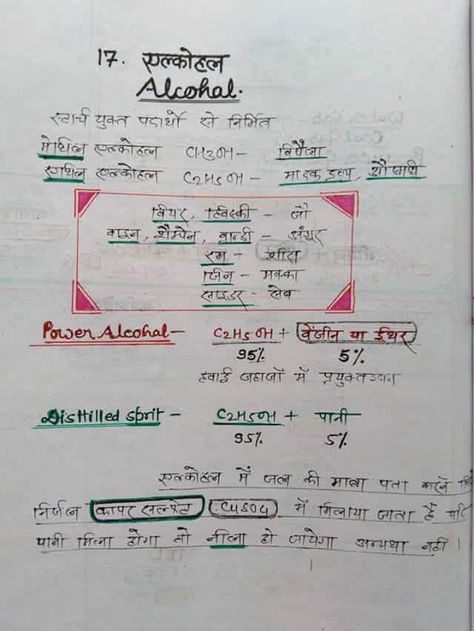 17. एल्कोहल
Alcohal.
स्टार्च युक्त पदार्थो से निर्मित
मेथिल एल्कोहल CH3OH - विषैला
एथिल एल्कोहल C2H5OH - मादक द्रव्य, औषधी
बियर, व्हिस्की - जौ
वाइन, शैम्पेन, ब्रान्डी - अंगूर
रम - शीरा
जिन - मक्का
साइडर - सेब
Power Alcohal - C2H5OH + बेंजीन या ईथर
95% 5%
हवाई जहाजों में प्रयुक्त
Distilled sprit - C2H5OH + पानी
95% 5%
एल्कोहल में जल की मात्रा पता करने
निर्जल कापर सल्फेट CuSO4 में मिलाया जाता है यदि
पानी मिला होगा तो नीला हो जायेगा अन्यथा नहीं।